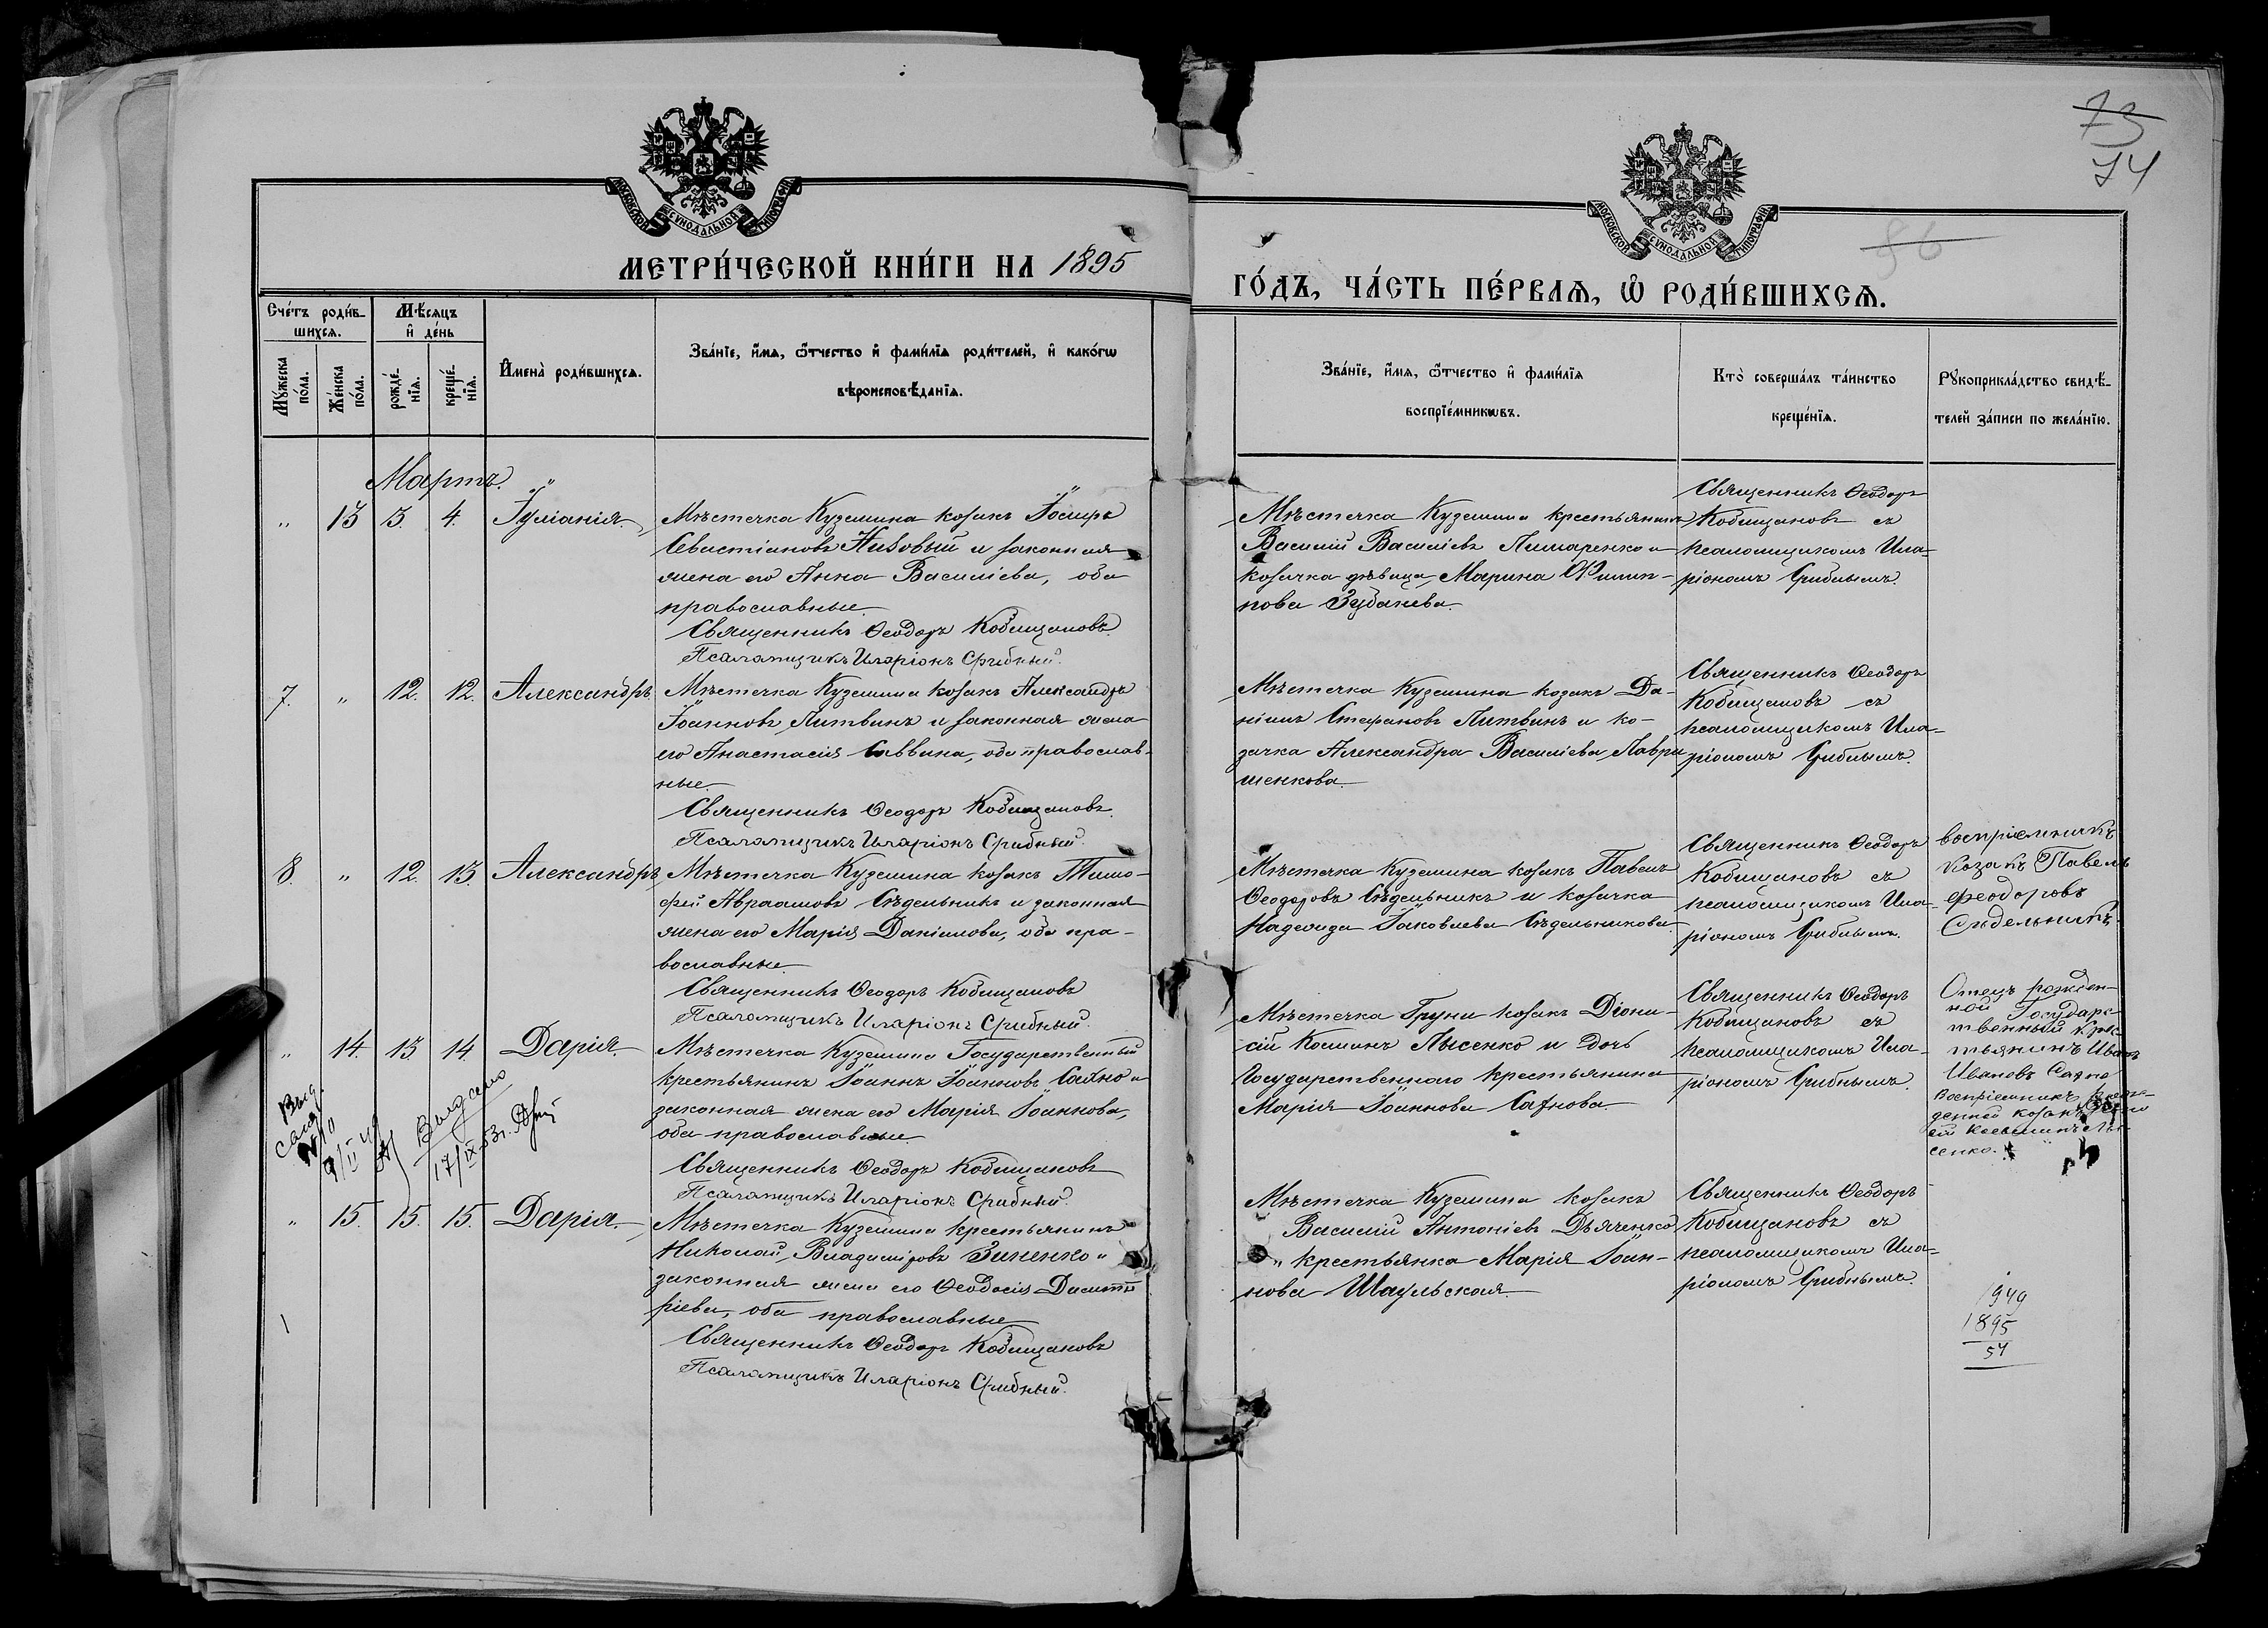 73
74
86
МОСКОВСКОЙ СѴНОДАЛЬНОЙ ТИПОГРАФІИ
МОСКОВСКОЙ СѴНОДАЛЬНОЙ ТИПОГРАФІИ
МЕТРИ́ЧЕСКОЙ КНИ́ГИ НА 1895
ГО́ДЪ, ЧА́СТЬ ПЕ́РВАѦ, Ѡ РОДИ́ВШИХСѦ.
Сче́тъ роди́в-
шихсѧ.
Мꙋ́жеска по́ла.
Же́нска по́ла.
Мѣ́сѧцъ
и҆ де́нь
рожде́-
нїѧ.
креще́-
нїѧ.
И҆мена̀ роди́вшихсѧ.
Зва́нїе, и҆́мѧ, ѻ҆́тчество и҆ фами́лїѧ роди́телей, и҆ како́гѡ
вѣроисповѣ́данїѧ.
Зва́нїе, и҆́мѧ, ѻ҆́тчество и҆ фами́лїѧ
воспрїе́мникѡвъ.
Кто̀ соверша́лъ та́инство
креще́нїѧ.
Рꙋкоприкла́дство свидѣ́-
телей за́писи по жела́нїю.
Мартъ.
" 13 3. 4. Іуліанія
Мѣстечка Куземина козакъ Іосифъ
Севастіановъ Низовый и законная
жена его Анна Василіева, оба
православные.
Священникъ Ѳеодоръ Кобищановъ
Псаломщикъ Иларіонъ Срибный.
Мѣстечка Куземина крестьянинъ
Василій Василіевъ Лимаренко и
козачка дѣвица Марина Филип-
пова Зубанева.
Священникъ Ѳеодоръ
Кобищановъ съ
псаломщикомъ Ила-
ріономъ Срибнымъ.
7. " 12. 12. Александръ
Мѣстечка Куземина козакъ Александръ
Іоанновъ Литвинъ и законная жена
его Анастасія Саввина, оба православ-
ные.
Священникъ Ѳеодоръ Кобищановъ.
Псаломщикъ Иларіонъ Срибный.
Мѣстечка Куземина козакъ Да-
ніилъ Стефановъ Литвинъ и ко-
зачка Александра Василіева Лаври
шенкова.
Священникъ Ѳеодоръ
Кобищановъ съ
псаломщикомъ Ила-
ріономъ Срибнымъ.
8. " 12. 13. Александръ
Мѣстечка Куземина козакъ Тимо-
фей Авраамовъ Сѣдельникъ и законная
жена его Марія Даніилова, оба пра-
вославные.
Священникъ Ѳеодоръ Кобищановъ
Псаломщикъ Иларіонъ Срибный.
Мѣстечка Куземина козакъ Павелъ
Ѳеодоровъ Сѣдельникъ и козачка
Надежда Іаковлева Сѣдельникова.
Священникъ Ѳеодоръ
Кобищановъ съ
псаломщикомъ Ила-
ріономъ Срибнымъ.
воспріемникъ
козакъ Павелъ
Феодоровъ
Сѣдельникъ.
" 14. 13 14. Дарія.
Мѣстечка Куземина Государственный
крестьянинъ Іоаннъ Іоанновъ Сахно и
законная жена его Марія Іоаннова,
оба православные.
Священникъ Ѳеодоръ Кобищановъ
Псаломщикъ Иларіонъ Срибный.
Мѣстечка Груни козакъ Діони-
сій Косминъ Лысенко и дочь
Государственнаго крестьянина
Марія Іоаннова Сахнова.
Священникъ Ѳеодоръ
Кобищановъ съ
псаломщикомъ Ила-
ріономъ Срибнымъ.
Отецъ рожден-
ной Государс-
твенный крес-
тьянинъ Иванъ
Ивановъ Сахно
Воспріемникъ
козакъ
Лы-
сенко.
Выдано
17/IX-53г.
" 15. 15. 15. Дарія.
Мѣстечка Куземина крестьянинъ
Николай Владиміровъ Зиненко и
законная жена его Ѳеодосія Димит
ріева, оба православные
Священникъ Ѳеодоръ Кобищановъ
Псаломщикъ Иларіонъ Срибный.
Мѣстечка Куземина козакъ
Василій Антоніевъ Дьяченко
и крестьянка Марія Іоан-
нова Шаульская.
Священникъ Ѳеодоръ
Кобищановъ съ
псаломщикомъ Ила-
ріономъ Срибнымъ.
1949
1895
54